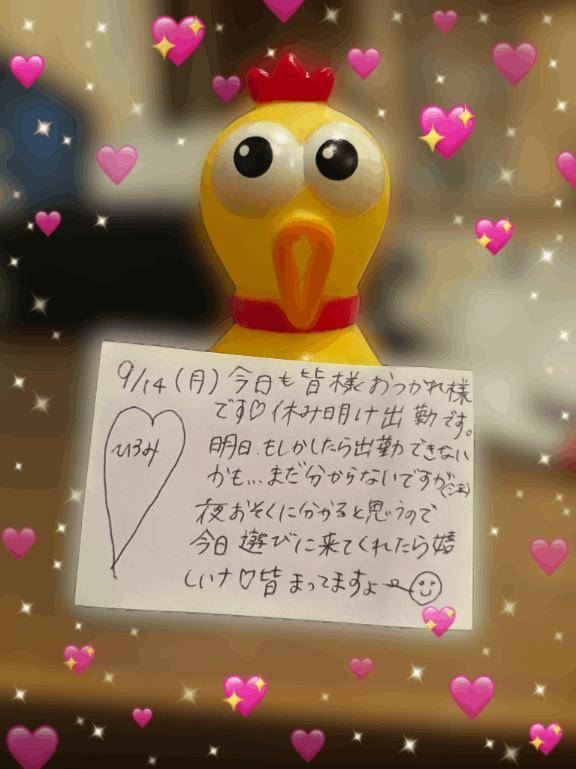 9/14(月)今日も皆様おつかれ様
です♡休み明け出勤です。
ひろみ
明日、もしかしたら出勤できない
かも...まだ分からないですが
夜おそくに分かると思うので
今日遊びに来てくれたら嬉
しいナ♡皆まってますよ